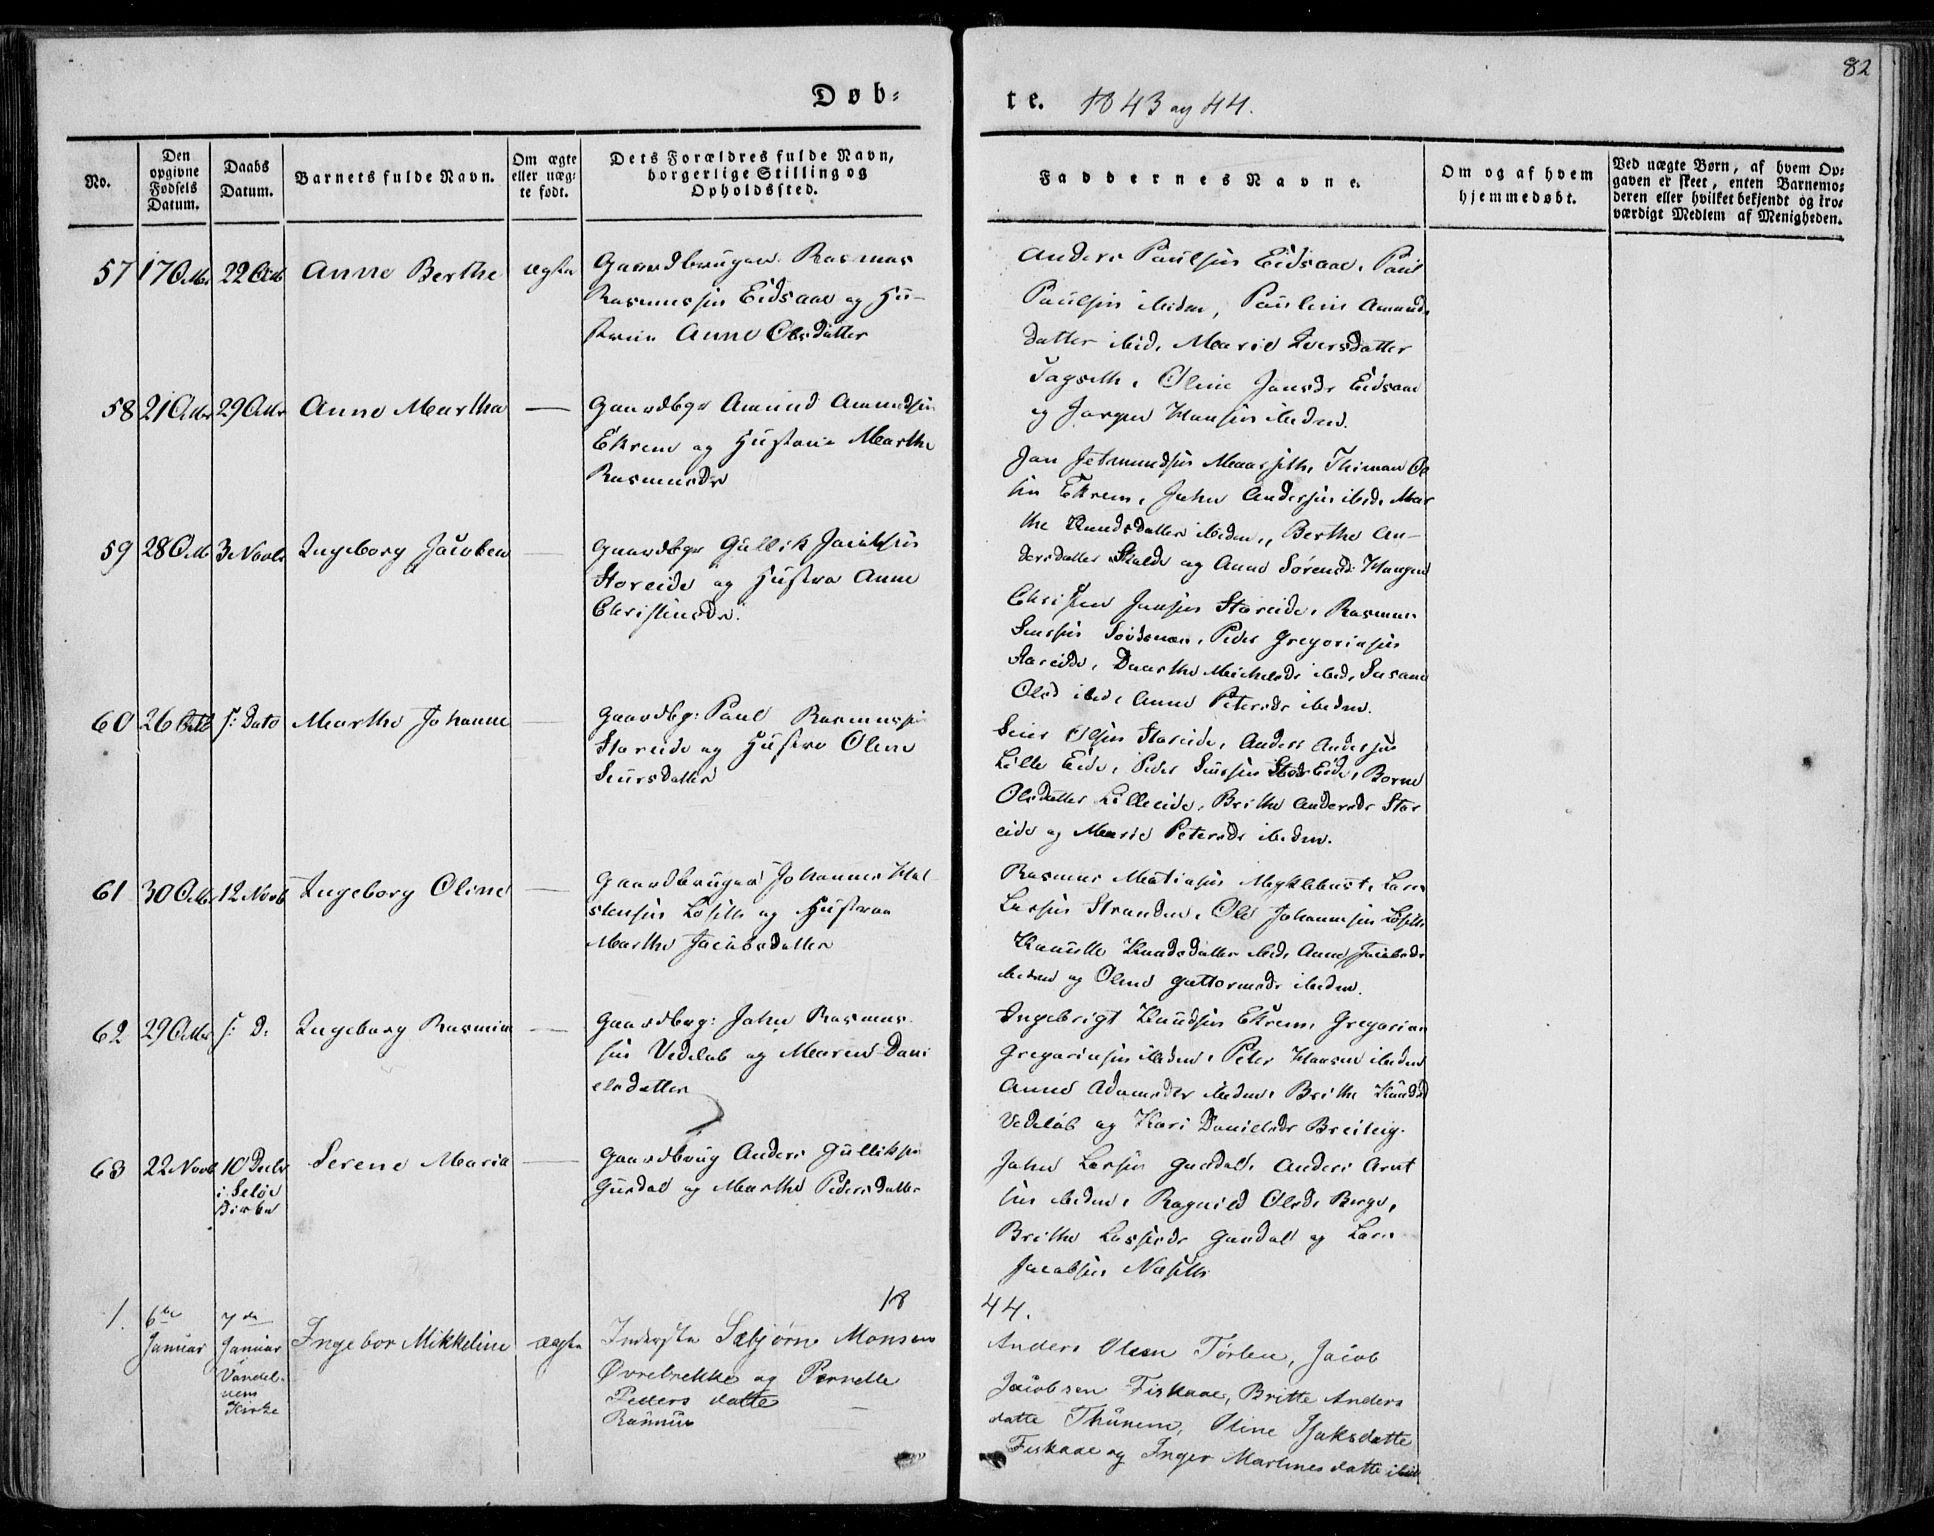 82
Døb-
te. 1843 og 44.
No.
Den opgivne Fødsels Datum.
Daabs Datum.
Barnets fulde Navn.
Om ægte eller uægte født.
Dets Forældres fulde Navn, borgerlige Stilling og Opholdssted.
Faddernes Navne.
Om og af hvem hjemmedøbt.
Ved uægte Børn, af hvem Opgaven er skeet, enten Barnemoderen eller hvilket bekjendt og troværdigt Medlem af Menigheden.
57 17 Octbr 22 Octb Anne Berthe ægte
Gaardbruger Rasmus
Rasmussen Eidsaae og Hu-
struen Anne Olsdatter
Anders Paulsen Eidsaae, Paul
Paulsen ibiden, Pauline Amunds
datter ibid, Marie Iversdatter
Oline Jansdr Eidsaae
og Jørgen Hansen ibiden.
58 21 Octbr 29 Octbr Anne Martha —
Gaardbgr Amund Amundsen
Ekrem og Hustrue Marthe
Rasmusdr
Jan Jetmundsen Maaseth,
Ekrem, John Andersen ibid, Mar
the Knudsdatter ibiden, Berthe An-
dersdatter og Anne Sørensd: Haugen
59 28 Octb 3 Novbr Ingeborg —
Gaardbgr Gullik Jacobsen
Storeide og Hustru Anne
Christensdr.
Christen Jansen Storeide, Rasmus
Peder Gregoriusen
Storeide, Michelsdr ibid, Susane
Olsd ibid, Anne Petersdr ibiden.
60 26 Octb s: Dato Marthe Johanne —
Gaardbg: Paul Rasmussen
Storeide og Hustru Oline
Siursdatter
Siur Olsen Storeide, Anders Andersen
Lille Eide, Peder Siursen Stor Eide, Borne
Olsdatter Lilleeide, Brithe Andersdr Stor
eide og Marie Petersdr ibiden.
61 30 Octbr 12 Novb Ingeborg Oline —
Gaardbruger Johannes Hal
stensen Løseth og Hustrue
Marthe Jacobsdatter
Rasmus Mathiasen Myklebust, Lars
Larsen Stranden, Ole Johannesen Løseth
Knudsdatter ibid, Anne Jacobsdr
ibiden og Oline Guttormsdr ibiden.
62 29 Octbr s: D: Ingeborg —
Gaardbrg: John Rasmus-
sen Vedelob og Maren Dani
elsdatter
Ingebrigt Knudsen Ekrem, Gregorius
Gregoriusen ibiden, Peter Hansen ibiden
Anne Adamsdr ibiden, Brithe Knudsd
Vedelob og Kari Danielsdr Breiteig.
63 22 Novb 10 Decbr Serene Maria —
i Seløe
Kirke
Gaardbrug Anders Gulliksen
Gurdal og Marthe Pedersdatter
John Larsen Gurdal, Anders Arnt
sen ibiden, Ragnild Olsdr Berge,
Brithe Larsensdr Gurdal og Lars
Jacobsen Næseth
18
44.
1. 6te
Januar
7de
Januar
Vandel-
vens
Kirke
Ingebor Mikkeline ægte
Inderste Sæbjørn Monsen
Øvrebrekke og Pernelle
Peders datte
Anders Olsen Jacob
Jacobsen Fiskaae, Britte Anders
datte Thunem, Oline Isaksdatte
Fiskaae og Inger Martines datte ibid